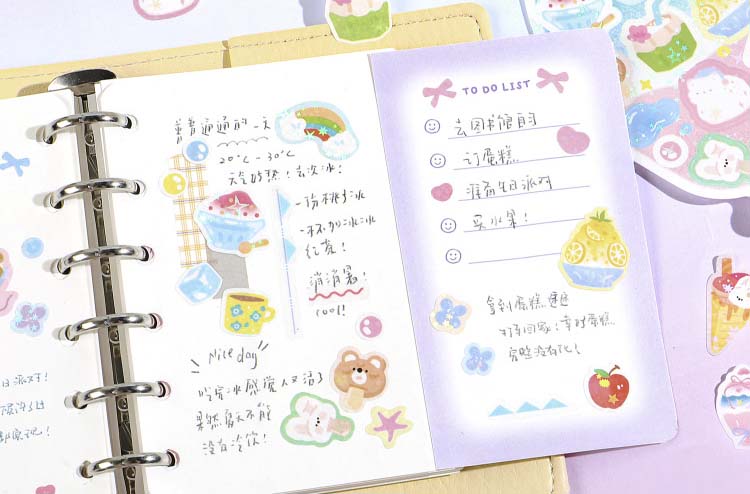 普普通通的一天
20℃-30℃
天气好热!去吃冰!
一份桃子冰
一杯加冰冰
红茶!
消消暑!
cool!
Nice day
吃完冰感觉人又活了
果然夏天不能
没有冷饮!
TO DO LIST
去图书馆自习
订蛋糕
准备生日派对
买水果!
拿到蛋糕速速
打车回家!幸好蛋糕
完整没有化!
日派对!